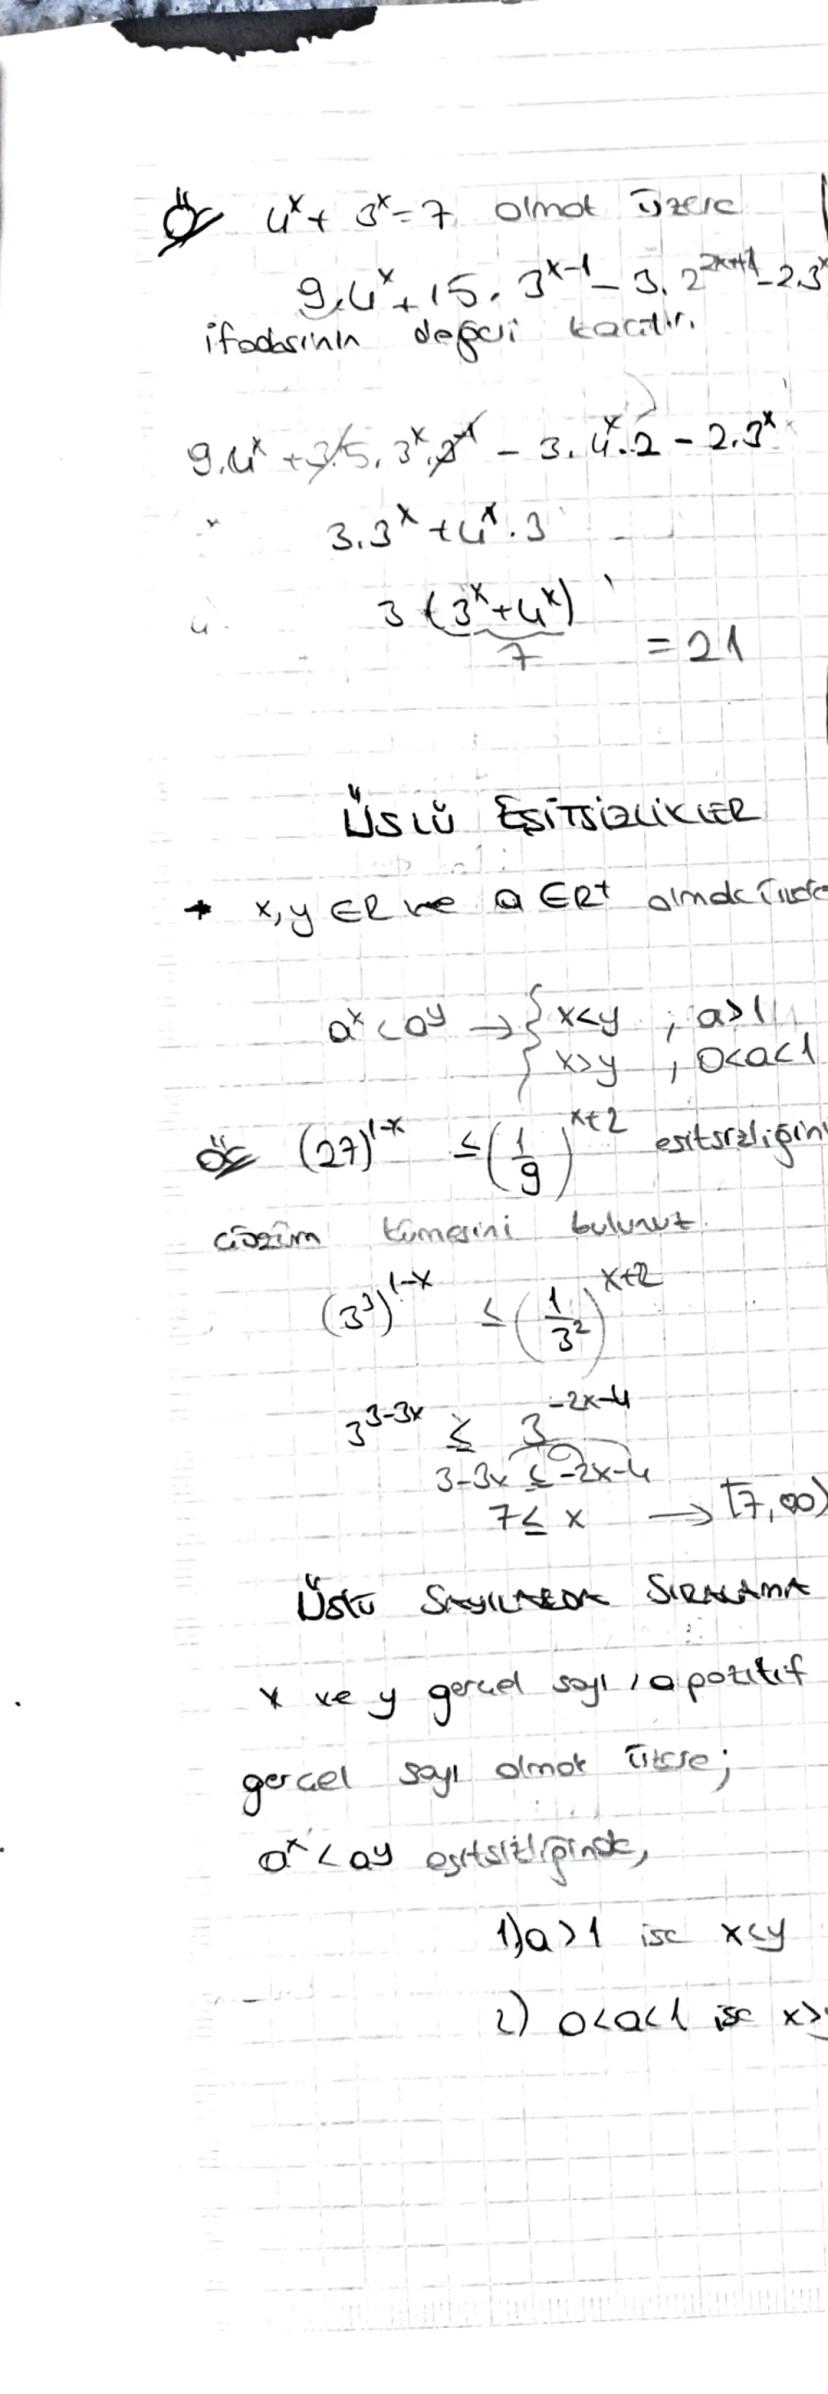 Ör 4^x + 3^x = 7 olmat üzere
9.4^x + 15.3^(x-1) - 3.2^(2x+1) - 2.3^x
ifadesinin değeri kaçtır.
9.4^x + 3.5.3^x.3^-1 - 3.4^x.2 - 2.3^x
3.3^x + 4^x.3
3(3^x + 4^x)
7 = 21
ÜSLÜ EŞİTSİZLİKLER
* x, y ∈ R ve a ∈ R+ olmak üzere
a^x < a^y → { x<y , a>1
{ x>y , 0<a<1
Ör (27)^(1-x) ≤ (1/9)^(x+2) eşitsizliğini
çözüm kümesini bulunuz.
(3^3)^(1-x) ≤ (1/3^2)^(x+2)
3^(3-3x) ≤ 3^(-2x-4)
3-3x ≤ -2x-4
7 ≤ x → [7, ∞)
ÜSLÜ SAYILARDA SIRALAMA
x ve y gerçel sayı, a pozitif
gerçel sayı olmak üzere;
a^x < a^y eşitsizliğinde,
1) a>1 ise x<y
2) 0<a<1 ise x>